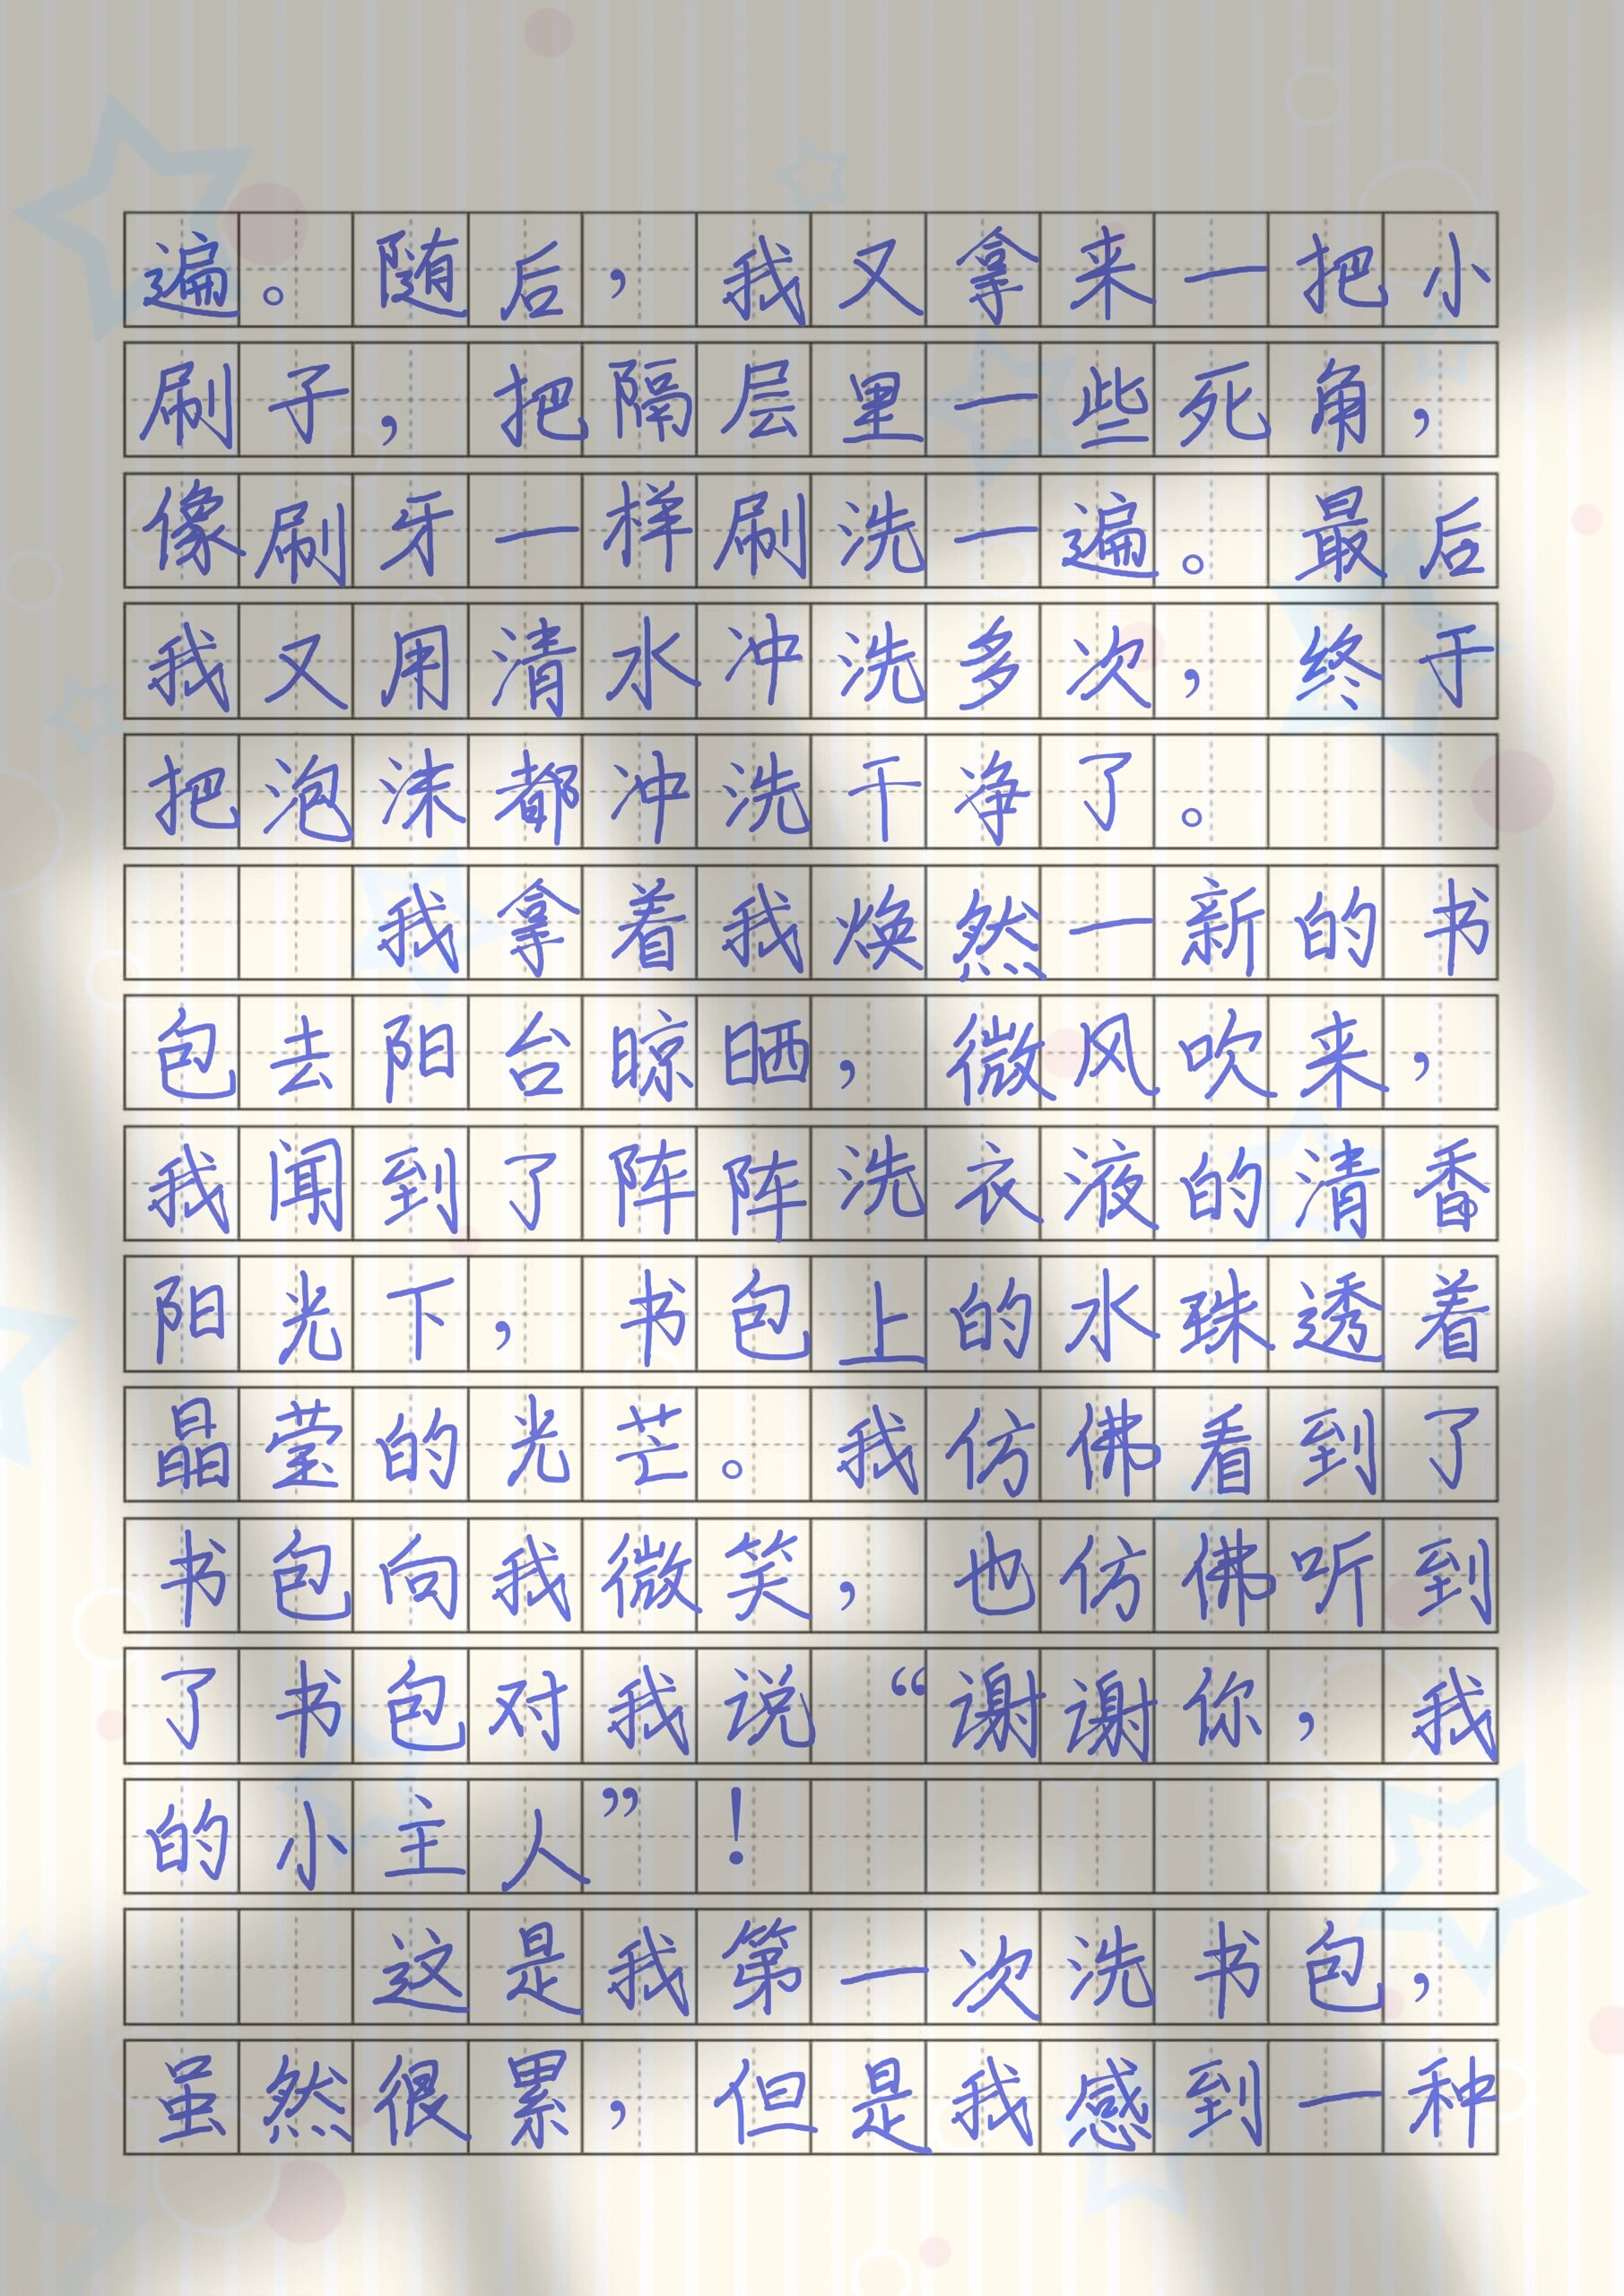 遍。随后，我又拿来一把小
刷子，把隔层里一些死角，
像刷牙一样刷洗一遍。最后
我又用清水冲洗多次，终于
把泡沫都冲洗干净了。
我拿着我焕然一新的书
包去阳台晾晒，微风吹来，
我闻到了阵阵洗衣液的清香。
阳光下，书包上的水珠透着
晶莹的光芒。我仿佛看到了
书包向我微笑，也仿佛听到
了书包对我说“谢谢你，我
的小主人”！
这是我第一次洗书包，
虽然很累，但是我感到一种